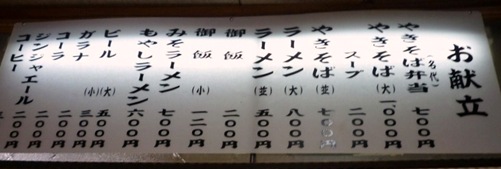 お献立
やきそば弁当(名代) 七〇〇円
やきそば(大) 一、〇〇〇円
スープ 二〇〇円
やきそば(並) 七〇〇円
ラーメン(大) 八〇〇円
ラーメン(並) 五〇〇円
御飯 二〇〇円
御飯 一二〇円
みそラーメン 七〇〇円
もやしラーメン 六〇〇円
ビール(大) 五〇〇円
(小)
ガラナ 三〇〇円
コーラ 二〇〇円
ジンジャエール 二〇〇円
コーヒー 二〇〇円